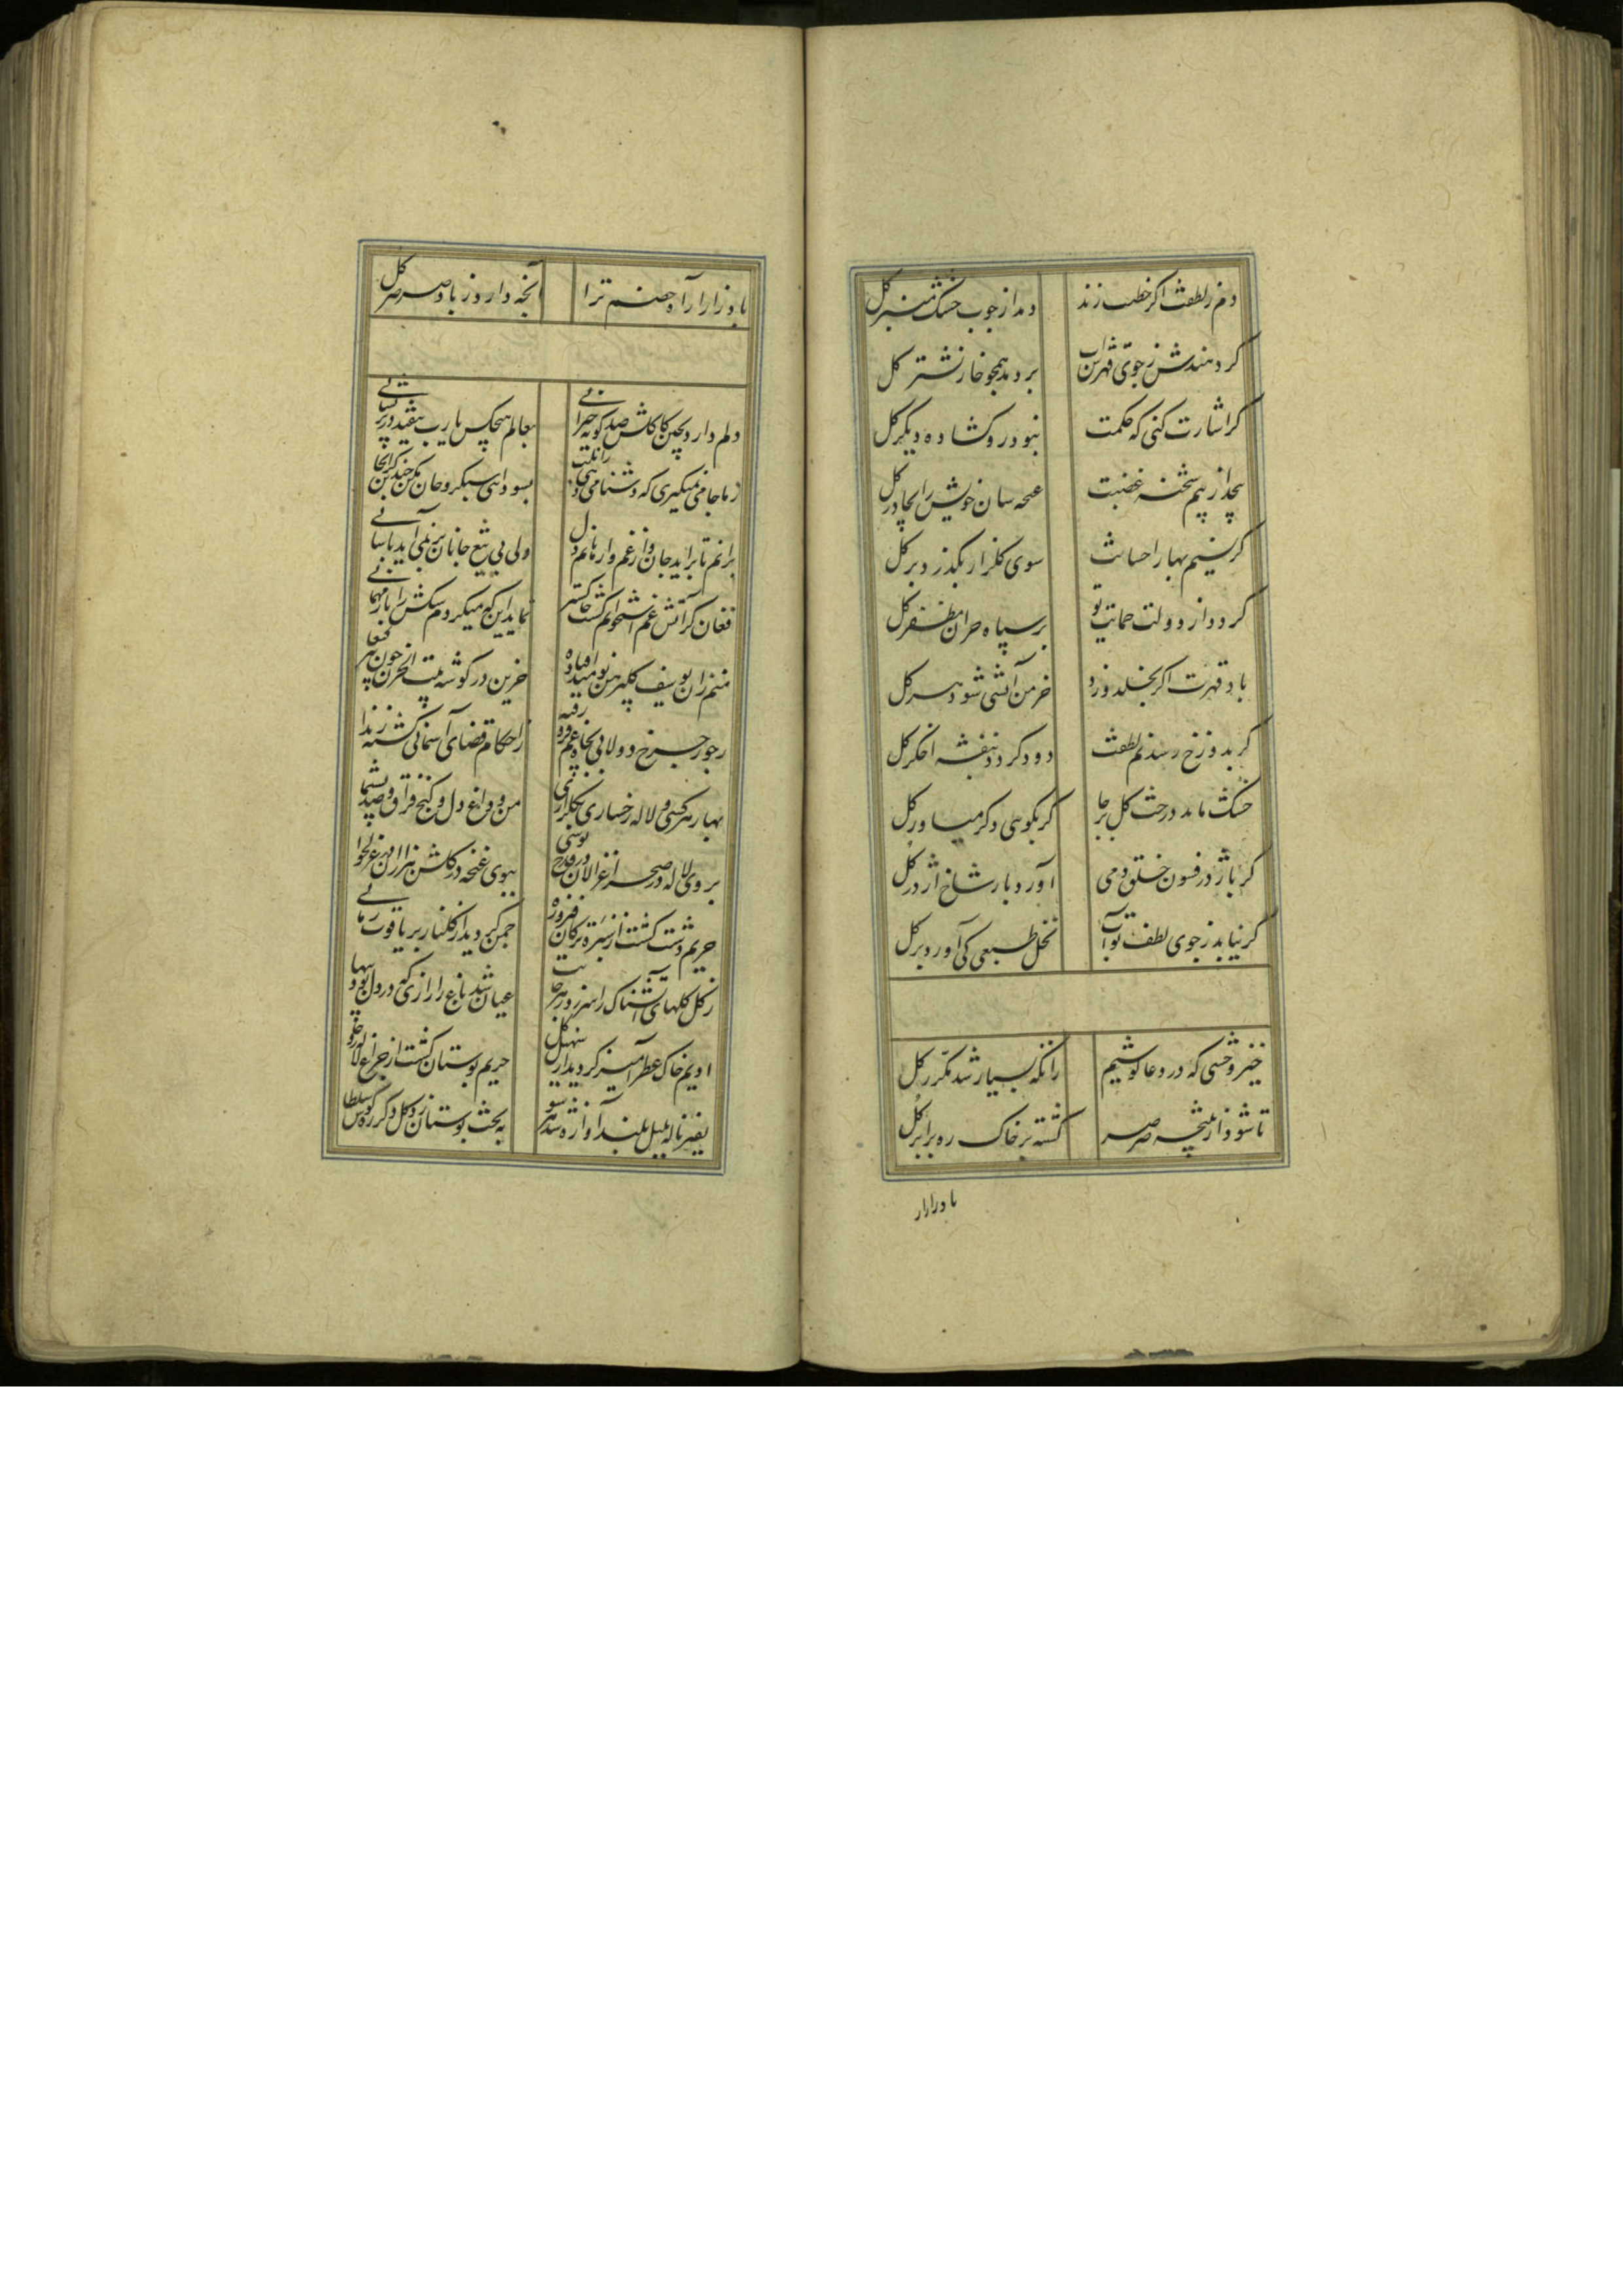 دم ز لطفت اگر خطیب زند دمد از چوب خشک منبر گل
گر دهندش ز جوی قهرت آب بر دمد همچو خار نشتر گل
گر اشارت کنی که حکمت نبود رو گشاده دیگر گل
بجد از بیم شحنه غضبت غنچه سان خویش را بچادر گل
گر نسیم بهار احسانت سوی گلزار بگذرد بر گل
گردد از دولت حمایت تو بر سپاه خزان مظفر گل
باد قهرت اگر بخلد وزد خرمن آتشی شود هر گل
گر بدوزخ رسد نم لطفت دود گردد بنفشه اخگر گل
خشک ماند درخت گل بر جا گر بگویی دگر میاور گل
گر باژدر فسون خلق دمی آورد بار شاخ اژدر گل
گر نیابد ز جوی لطف تو آب نخل طبعی کی آورد بر گل
خیز وحشی که در دعا کوشیم زانکه بسیار شد مکرر گل
تا شود از پنجه صرصر گشته بر خاک ره برابر گل
باد زار
باد زار آه خصم ترا آنچه دارد ز باد صرصر گل
دلم دارد بچین کاکلش صد گونه حیرانی بعالم هیچکس یا رب نیفتد در پریشانی
ز ما جانی نمیگیری که دشنامی دهی بسودایی سبکرو جان مکن چندین گرانجانی
برانم تا برآید جان و از غم وارهانم دل ولی بی تیغ جانان بر نمی آید بآسانی
فغان کز آتش غم استخوانم گشت خاکستر نمی آید این که میکردم سگش را باز مهمانی
منم زان یوسف گلپیرهن نومید افتاده حزین در گوشه بیت الحزن چون پیر کنعانی
ز جور چرخ دولابی بچاه غم فرو رفته ز احکام قضای آسمانی گشته زندانی
بهار هر کسی و لاله رخساری بگلزاری من و داغ دل و کنج فراق و صد پشیمانی
بروی لاله در صحرا غزالان در قدح نوشی ببوی غنچه در گلشن هزاران در غزلخوانی
حریم دشت گشت از سبزه تر کان فیروزه چمن گردید از گلنار پر یاقوت رمانی
ز گل گلهای آتشناک را سر زد ز هر جانب عیان شد باغ را رازی که در دل بود پنهانی
ادیم خاک عطرآمیز گردید از سهیل گل حریم بوستان گشت از چراغ لاله نورانی
نفیر ناله بلبل بلند آوازه شد هر سو به تخت بوستان زد گل دگر ره کوس سلطانی